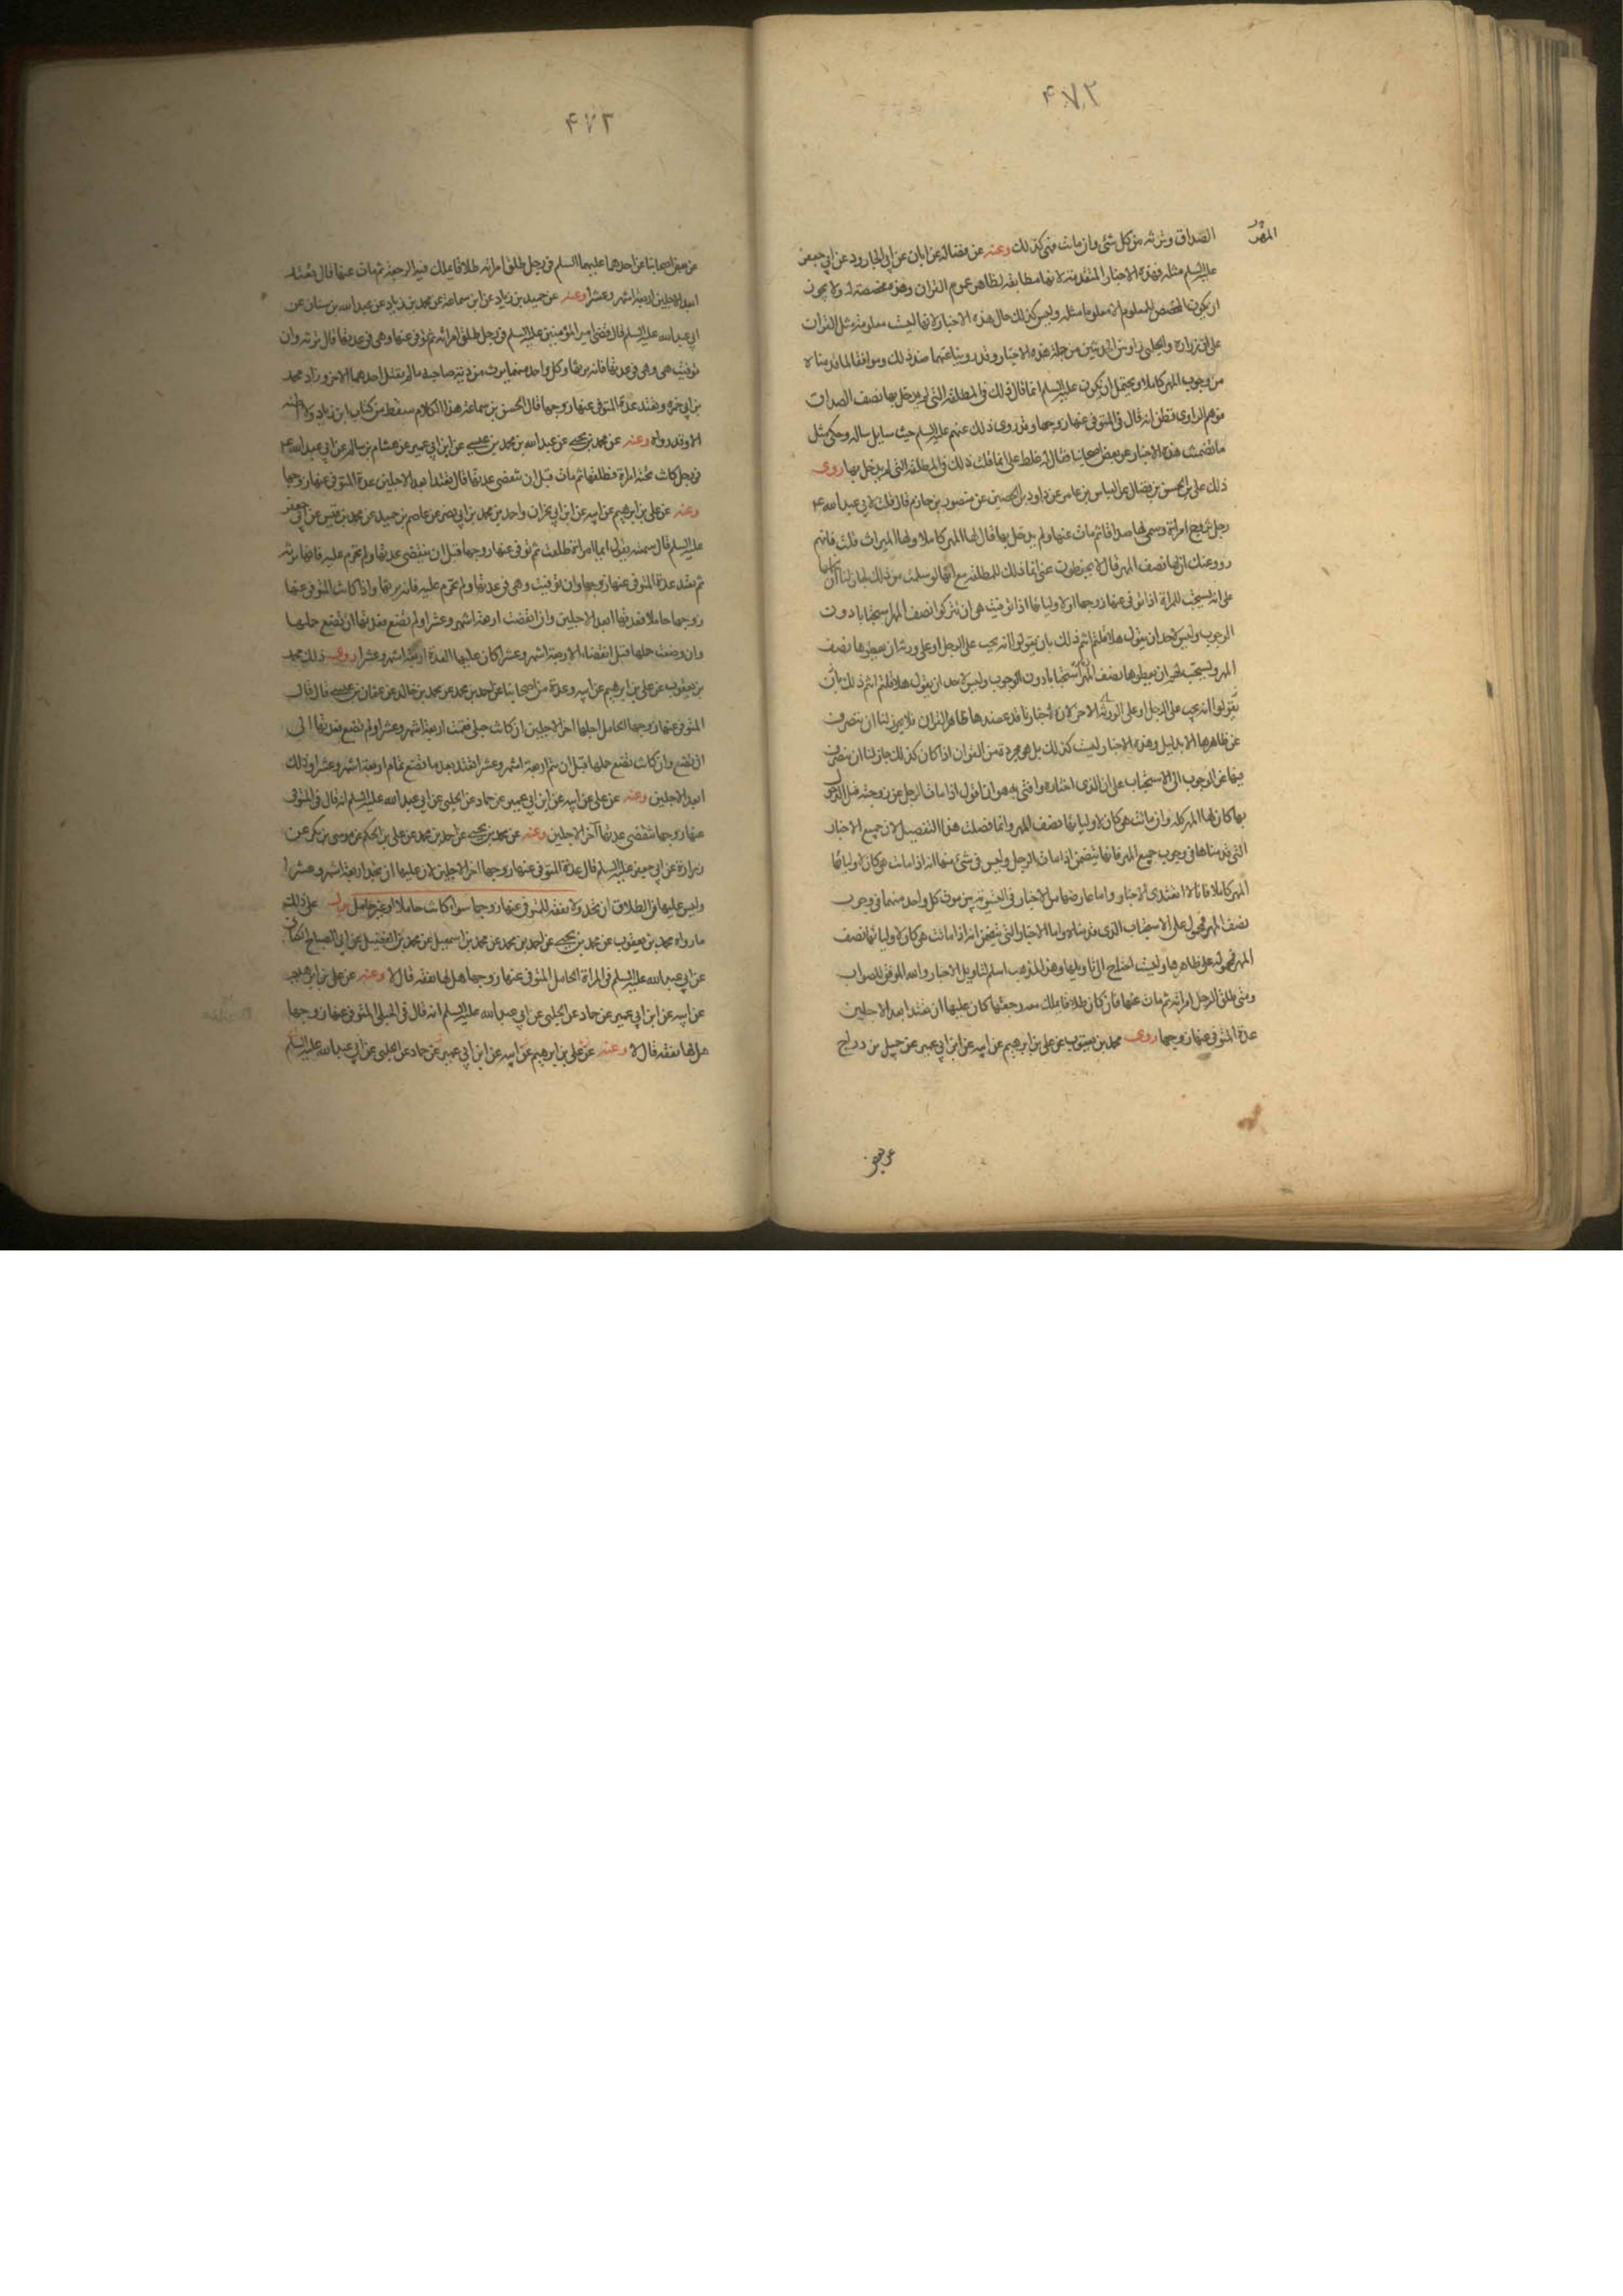 ۴۷۲
المهر
الصداق وترثه من كل شئ وان ماتت فهى كذلك وعنه عن فضالة عن ابان عن ابى الجارود عن ابى جعفر
عليه السلم مثله فهذه الاخبار المتقدمة لانها مطابقة لظاهر عموم القران وهذه مخصصة له ولا يجوز
ان يكون المخصص للمعلوم الا معلوما مثله وليس كذلك حال هذه الاخبار لانها ليست معلومة مثل القران
على ان زرارة والحلبى راويى الحديثين من جملة هذه الاخبار وقد روينا عنهما ضد ذلك وموافقا لما قدمناه
من وجوب المهر كاملا ويحتمل ان يكون عليه السلم انما قال ذلك فى المطلقة التى لم يدخل بها نصف الصداق
فوهم الراوى فظن انه قال فى المتوفى عنها زوجها وقد روى ذلك عنهم عليه السلم حيث سايل ساله وحكى مثل
ما تضمنت هذه الاخبار عن بعض اصحابنا فقال له غلط على انما قلت ذلك فى المطلقة التى لم يدخل بها روى
ذلك على بن الحسن بن فضال عن العباس بن عامر عن داود بن الحصين عن منصور بن حازم قال قلت لابى عبد الله ع
رجل تزوج امراة وسمى لها صداقا ثم مات عنها ولم يدخل بها قال لها المهر كاملا ولها الميراث قلت فانهم
رووا عنك ان لها نصف المهر قال لا يحفظون عنى انما ذلك للمطلقة مع انها لو سلمت من ذلك لجاز لنا ان
على انه يستحب للمراة اذا توفى عنها زوجها او لاوليائها اذا توفيت هى ان تتركوا نصف المهر استحبابا دون
الوجوب وليس لاحد ان يقول هلا قلتم انتم ذلك بان تقولوا انه يجب على الرجل او على ورثته ان يعطوها نصف
المهر ويستحب لهم ان يعطوها نصف المهر استحبابا دون الوجوب وليس لاحد ان يقول هلا قلتم انتم ذلك بان
تقولوا انه يجب على الرجل او على الورثة الاخر لان اخبارنا قد عضدها ظاهر القران فلا يجوز لنا ان ننصرف
عن ظاهرها الا بدليل وهذه الاخبار ليست كذلك بل هى مجردة من القران اذا كان كذلك جاز لنا ان ننصرف
فيها عن الوجوب الى الاستحباب على ان الذى اختاره وافتى به هو ان اقول اذا مات الرجل عن زوجته قبل الدخول
بها كان لها المهر كله وان ماتت هى كان لاوليائها نصف المهر وانما فصلت هذا التفصيل لان جميع الاخبار
التى قدمناها فى وجوب جميع المهر فانها يتضمن اذا مات الرجل وليس فى شئ منها انه اذا ماتت هى كان لاوليائها
المهر كاملا فانا لا اتعدى الاخبار واما ما عارضها من الاخبار فى التسوية بين موت كل واحد منهما فى وجوب
نصف المهر فمحمول على الاستحباب الذى قدمناه واما الاخبار التى يتضمن انه اذا ماتت هى كان لاوليائها نصف
المهر فمحمولة على ظاهرها ولست احتاج الى تاويلها وهذا المذهب اسلم لتاويل الاخبار والله الموفق للصواب
ومتى طلق الرجل امراته ثم مات عنها فان كان طلاقا يملك معه رجعتها كان عليها ان تعتد ابعد الاجلين
عدة المتوفى عنها زوجها روى محمد بن يعقوب عن على بن ابرهيم عن ابيه عن ابن ابى عمير عن جميل بن دراج
عن بعض
۴۷۳
عن بعض اصحابنا عن احدهما عليهما السلم فى رجل طلق امراته طلاقا يملك فيه الرجعة ثم مات عنها قال تعتد
ابعد الاجلين اربعة اشهر وعشرا وعنه عن حميد بن زياد عن ابن سماعة عن محمد بن زياد عن عبد الله بن سنان عن
ابى عبد الله عليه السلم قال قضى امير المؤمنين عليه السلم فى رجل طلق امراته ثم توفى عنها وهى فى عدتها قال ترثه وان
توفيت هى وهى فى عدتها فانه يرثها وكل واحد منهما يرث من دية صاحبه ما لم يقتل احدهما الاخر وزاد محمد
بن ابى حمزة وتعتد عدة المتوفى عنها زوجها قال الحسن بن سماعة هذا الكلام سقط من كتاب ابن زياد ولا اظنه
الا وقد رواه وعنه عن محمد بن يحيى عن عبد الله بن محمد بن عيسى عن ابن ابى عمير عن هشام بن سالم عن ابى عبد الله ع
فى رجل كانت تحته امراة فطلقها ثم مات قبل ان تنقضى عدتها قال تعتد ابعد الاجلين عدة المتوفى عنها زوجها
وعنه عن على بن ابرهيم عن ابيه عن ابن ابى نجران واحمد بن محمد بن ابى نصر عن عاصم بن حميد عن محمد بن قيس عن ابى جعفر
عليه السلم قال سمعته يقول ايما امراة طلقت ثم توفى عنها زوجها قبل ان ينقضى عدتها ولم تحرم عليه فانها ترثه
ثم تعتد عدة المتوفى عنها زوجها وان توفيت وهى فى عدتها ولم تحرم عليه فانه يرثها واذا كانت المتوفى عنها
زوجها حاملا فعدتها ابعد الاجلين وان انقضت اربعة اشهر وعشرا ولم تضع فعدتها ان تضع حملها
وان وضعت حملها قبل انقضاء الاربعة اشهر وعشرا كان عليها العدة اربعة اشهر وعشرا روى ذلك محمد
بن يعقوب عن على بن ابرهيم عن ابيه وعدة من اصحابنا عن احمد بن محمد عن محمد بن خالد عن عثمان بن عيسى قال قال
المتوفى عنها زوجها الحامل اجلها اخر الاجلين ان كانت حبلى فتمت اربعة اشهر وعشرا ولم تضع فعدتها الى
ان تضع وان كانت تضع حملها قبل ان يتم اربعة اشهر وعشرا تعتد بعد ما تضع تمام اربعة اشهر وعشرا وذلك
ابعد الاجلين وعنه عن على عن ابيه عن ابن ابى عمير عن حماد عن الحلبى عن ابى عبد الله عليه السلم انه قال فى المتوفى
عنها زوجها تنقضى عدتها آخر الاجلين وعنه عن محمد بن يحيى عن احمد بن محمد عن على بن الحكم عن موسى بن بكر عن
زرارة عن ابى جعفر عليه السلم قال عدة المتوفى عنها زوجها اخر الاجلين لان عليها ان تحد اربعة اشهر وعشرا
وليس عليها فى الطلاق ان تحد ولا نفقة للمتوفى عنها زوجها سواء كانت حاملا او غير حامل يدل على ذلك
ما رواه محمد بن يعقوب عن محمد بن يحيى عن احمد بن محمد عن محمد بن اسمعيل عن محمد بن الفضيل عن ابى الصباح الكنانى
عن ابى عبد الله عليه السلم فى المراة الحامل المتوفى عنها زوجها هل لها نفقة قال لا وعنه عن على بن ابرهيم
عن ابيه عن ابن ابى عمير عن حماد عن الحلبى عن ابى عبد الله عليه السلم انه قال فى الحبلى المتوفى عنها زوجها
هل لها نفقة قال لا وعنه عن على بن ابرهيم عن ابيه عن ابن ابى عمير عن حماد عن الحلبى عن ابى عبد الله عليه السلم